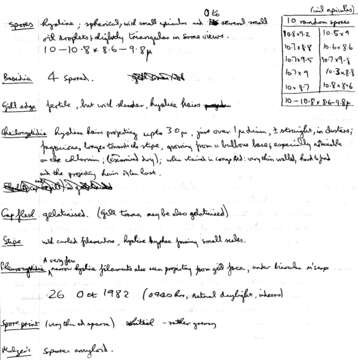 (with apiculus)
10 random spores
10.8 x 9.2 10.5 x 9
10.7 x 8.8 10.6 x 8.6
10.7 x 9.5 10.7 x 9.8
10.7 x 9 10.3 x 8.8
10 x 8.7 10.8 x 8.6
10 - 10.8 x 8.6 - 9.8 µ
0 to
spores hyaline; spherical, with small apiculus and several small
oil droplets; slightly triangular in some views.
10 - 10.8 x 8.6 - 9.8 µ
Basidia 4 spored.
Gill edge fertile, but with slender, hyaline hairs
Cheilocystidia hyaline hairs projecting up to 30 µ, just over 1 µ diam, ± straight, in clusters;
longer towards the stipe, growing from a bulbous base; especially
on the (examined dry); when stained in very thin walled, hard to find
and the projecting hairs often lost.
Cap flesh gelatinised. (Gill trama may be also gelatinised)
Stipe with curled filaments, hyaline hyphae forming small scales.
A very few
Pleurocystidia, narrow hyaline filaments also seen projecting from gill face, under binocular
26 Oct 1982 (0920 hrs, natural daylight, indoors)
Spore print (very thin and sparse)
Melzer's spores amyloid.